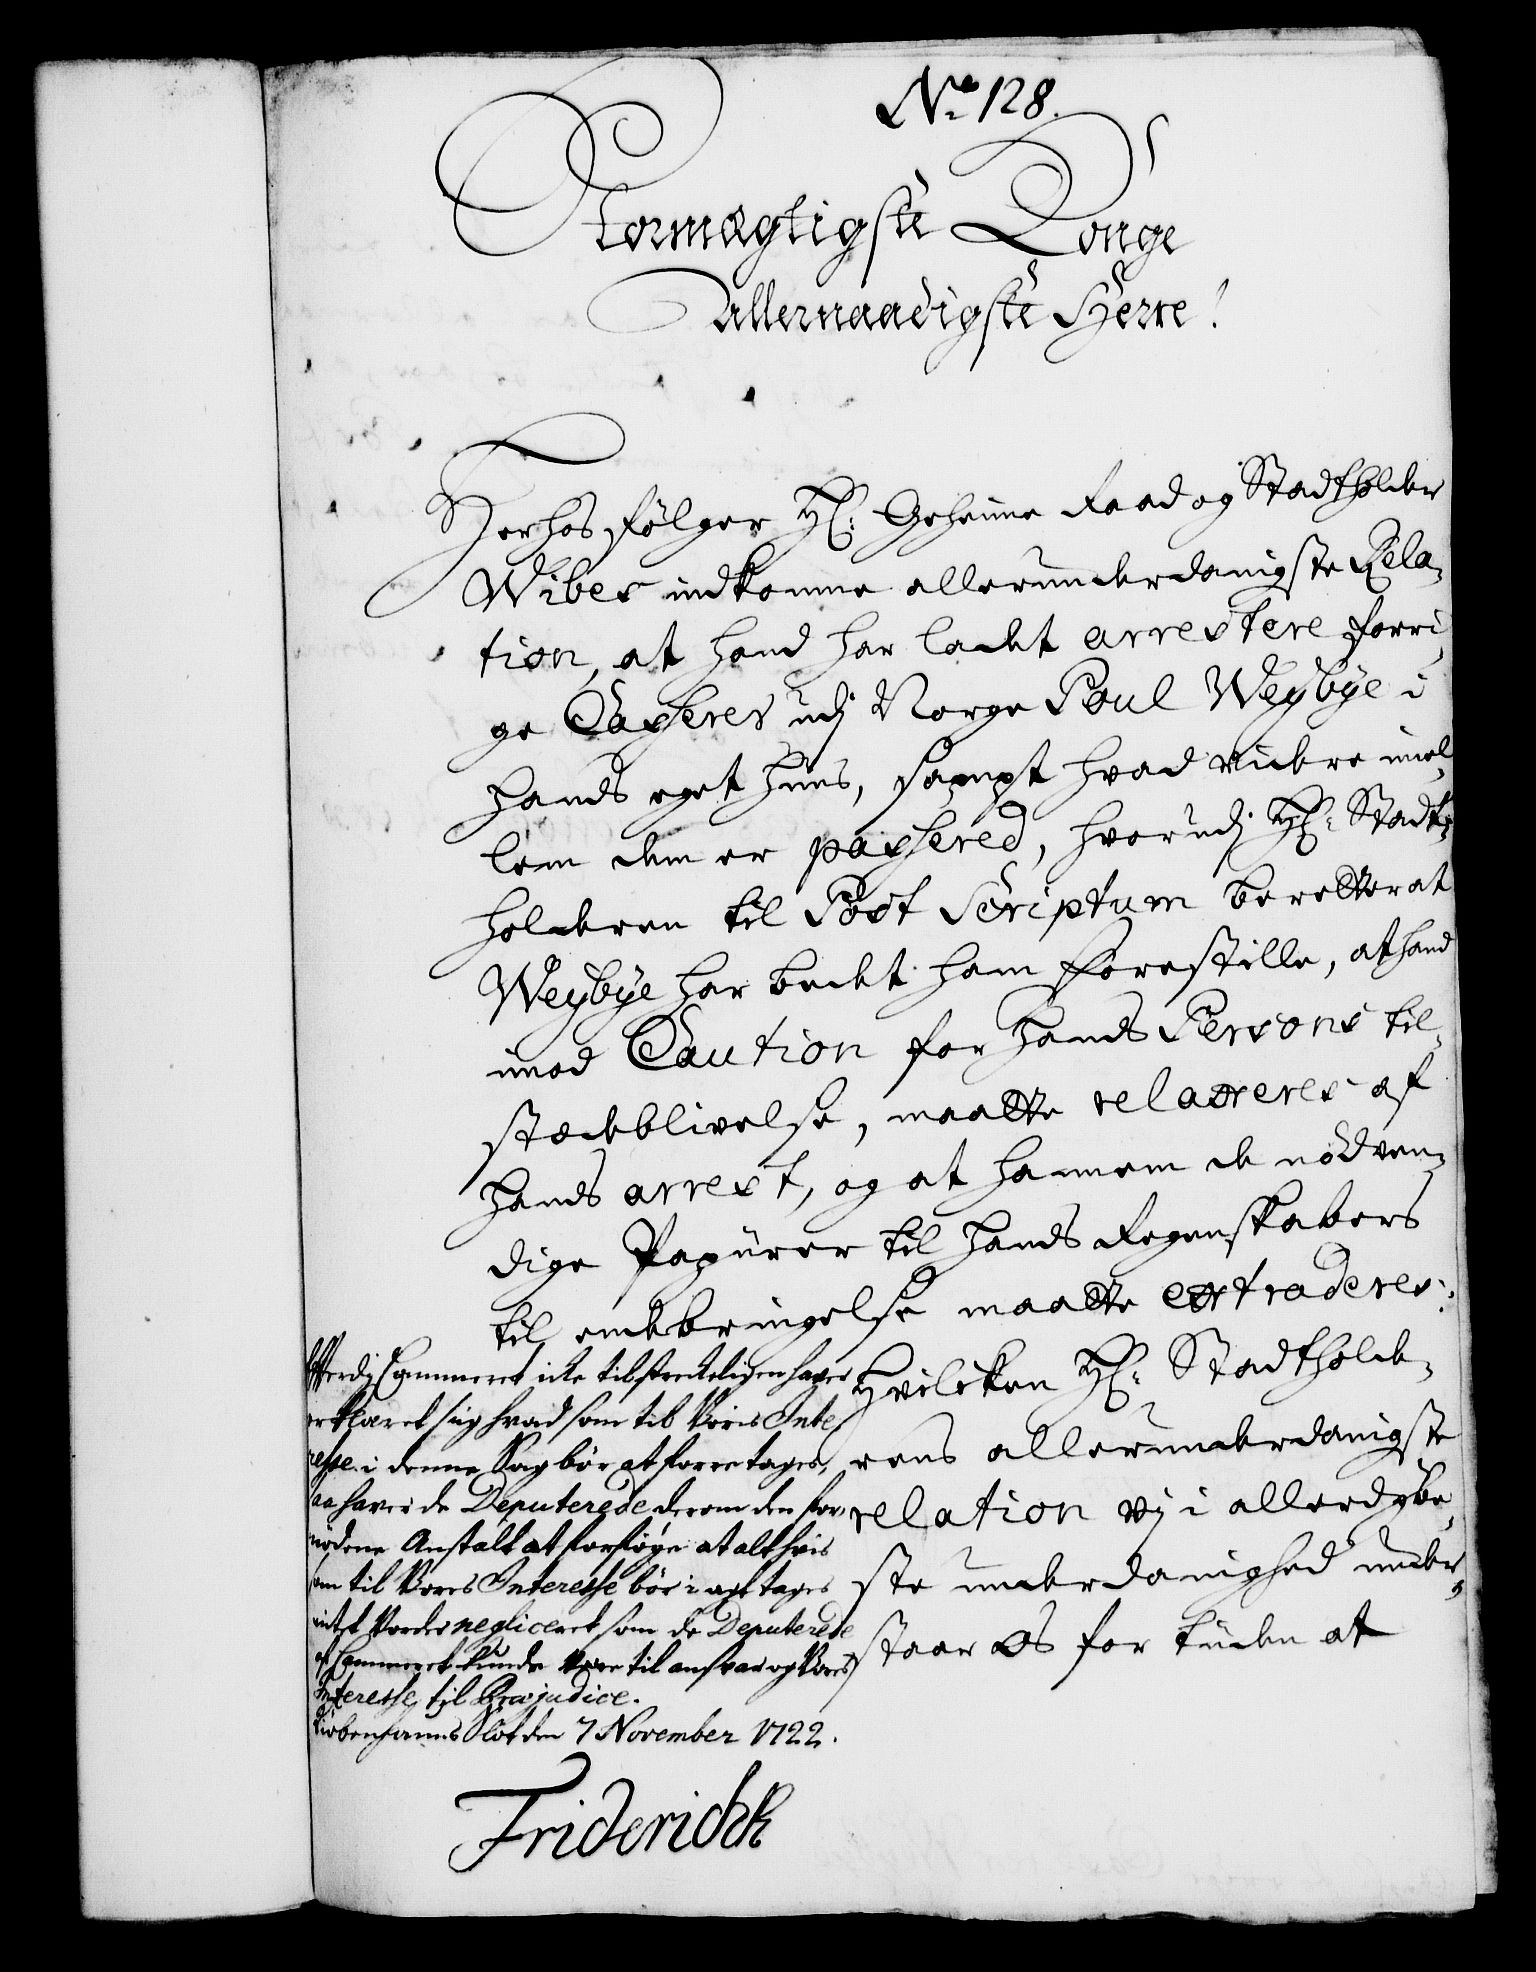 No. 128.
Stormægtigste Konge
Allernaadigste Herre!
Herhos følger H: Geheime Raad og Stadtholder
Wibes indkomne allerunderdanigste Rela-
tion, at hand har ladet arrestere forri-
ge Casserer udj Norge Poul Weybye i
hands eget Huus, sampt hvad videre imel-
lem dem er passered, hvorudj H: Stadt-
holderen til Post Scriptum beretter at
Weybye har bedet ham forestille, at hand
imod Caution for hands Persons til-
stædeblivelse, maatte relaxeres af
hands arrest, og at hannem de nødven-
dige Papiirer til hands Regenskabers
til endebringelse maatte extraderes:
Hvilcken H: Stadtholde-
rens allerunderdanigste
relation vj i allerdybe-
ste underdanighed under-
staar os for tiiden at
Efterdj Cammeret icke tilstreckeligen haver
erklæret sig hvad som til Voris Inte-
resse i denne Sag bør at foretages,
saa haver de Deputerede derom den for-
nødene Anstalt at forføye at alt hvis
som til Vores Interesse bør i agt tages
intet Vorder negliceret som de Deputerede
af Cammeret kunde Være til ansvar og Vores
Interesse til Præjudice.
Kiøbenhavns Slot den 7 November 1722.
Friderich R